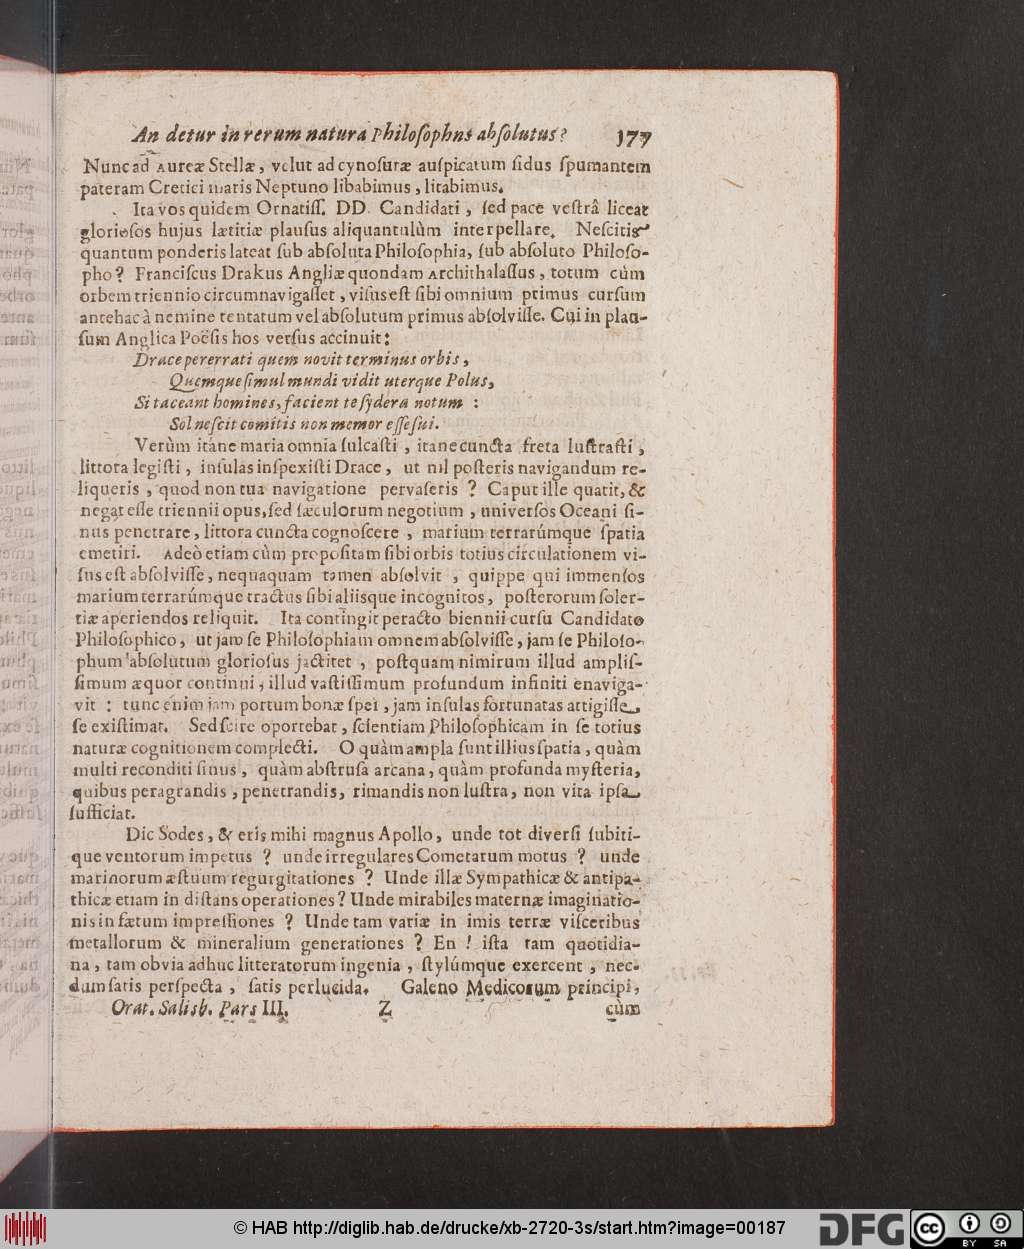 An detur in rerum natura Philoſophus abſolutus? 177
Nunc ad Aureæ Stellæ, velut ad cynoſuræ auſpicatum ſidus ſpumantem
pateram Cretici maris Neptuno libabimus, litabimus.
Ita vos quidem Ornatiſſ. DD. Candidati, ſed pace veſtrâ liceat
glorioſos hujus lætitiæ plauſus aliquantulùm interpellare. Neſcitis
quantum ponderis lateat ſub abſoluta Philoſophia, ſub abſoluto Philoſo-
pho? Franciſcus Drakus Angliæ quondam Archithalaſſus, totum cùm
orbem triennio circumnavigaſſet, viſus eſt ſibi omnium primus curſum
antehac à nemine tentatum vel abſolutum primus abſolviſſe. Cui in plau-
ſum Anglica Poëſis hos verſus accinuit:
Drace pererrati quem novit terminus orbis,
Quemque ſimul mundi vidit uterque Polus,
Si taceant homines, facient te ſydera notum :
Sol neſcit comitis non memor eſſe ſui.
Verùm itáne maria omnia ſulcaſti, itane cuncta freta luſtraſti,
littora legiſti, inſulas inſpexiſti Drace, ut nil poſteris navigandum re-
liqueris, quod non tua navigatione pervaſeris ? Caput ille quatit, &
negat eſſe triennii opus, ſed ſæculorum negotium, univerſos Oceani ſi-
nus penetrare, littora cuncta cognoſcere, marium terrarúmque ſpatia
emetiri. Adeò etiam cùm propoſitam ſibi orbis totius circulationem vi-
ſus eſt abſolviſſe, nequaquam tamen abſolvit, quippe qui immenſos
marium terrarúmque tractus ſibi aliisque incognitos, poſterorum ſoler-
tiæ aperiendos reliquit. Ita contingit peracto biennii curſu Candidato
Philoſophico, ut jam ſe Philoſophiam omnem abſolviſſe, jam ſe Philoſo-
phum abſolutum glorioſus jactitet, poſtquam nimirum illud ampliſ-
ſimum æquor continui, illud vaſtiſſimum profundum infiniti enaviga-
vit : tunc enim jam portum bonæ ſpei, jam inſulas fortunatas attigiſſe
ſe exiſtimat. Sed ſcire oportebat, ſcientiam Philoſophicam in ſe totius
naturæ cognitionem complecti. O quàm ampla ſunt illius ſpatia, quàm
multi reconditi ſinus, quàm abſtruſa arcana, quàm profunda myſteria,
quibus peragrandis, penetrandis, rimandis non luſtra, non vita ipſa
ſufficiat.
Dic Sodes, & eris mihi magnus Apollo, unde tot diverſi ſubiti-
que ventorum impetus ? unde irregulares Cometarum motus ? unde
marinorum æſtuum regurgitationes ? Unde illæ Sympathicæ & antipa-
thicæ etiam in diſtans operationes? Unde mirabiles maternæ imaginatio-
nis in fætum impreſſiones ? Unde tam variæ in imis terræ viſceribus
metallorum & mineralium generationes ? En ! iſta tam quotidia-
na, tam obvia adhuc litteratorum ingenia, ſtylúmque exercent, nec-
dum ſatis perſpecta, ſatis perlucida. Galeno Medicorum principi,
Orat. Salisb. Pars III. Z cùm
© HAB http://diglib.hab.de/drucke/xb-2720-3s/start.htm?image=00187
DFG
cc BY SA